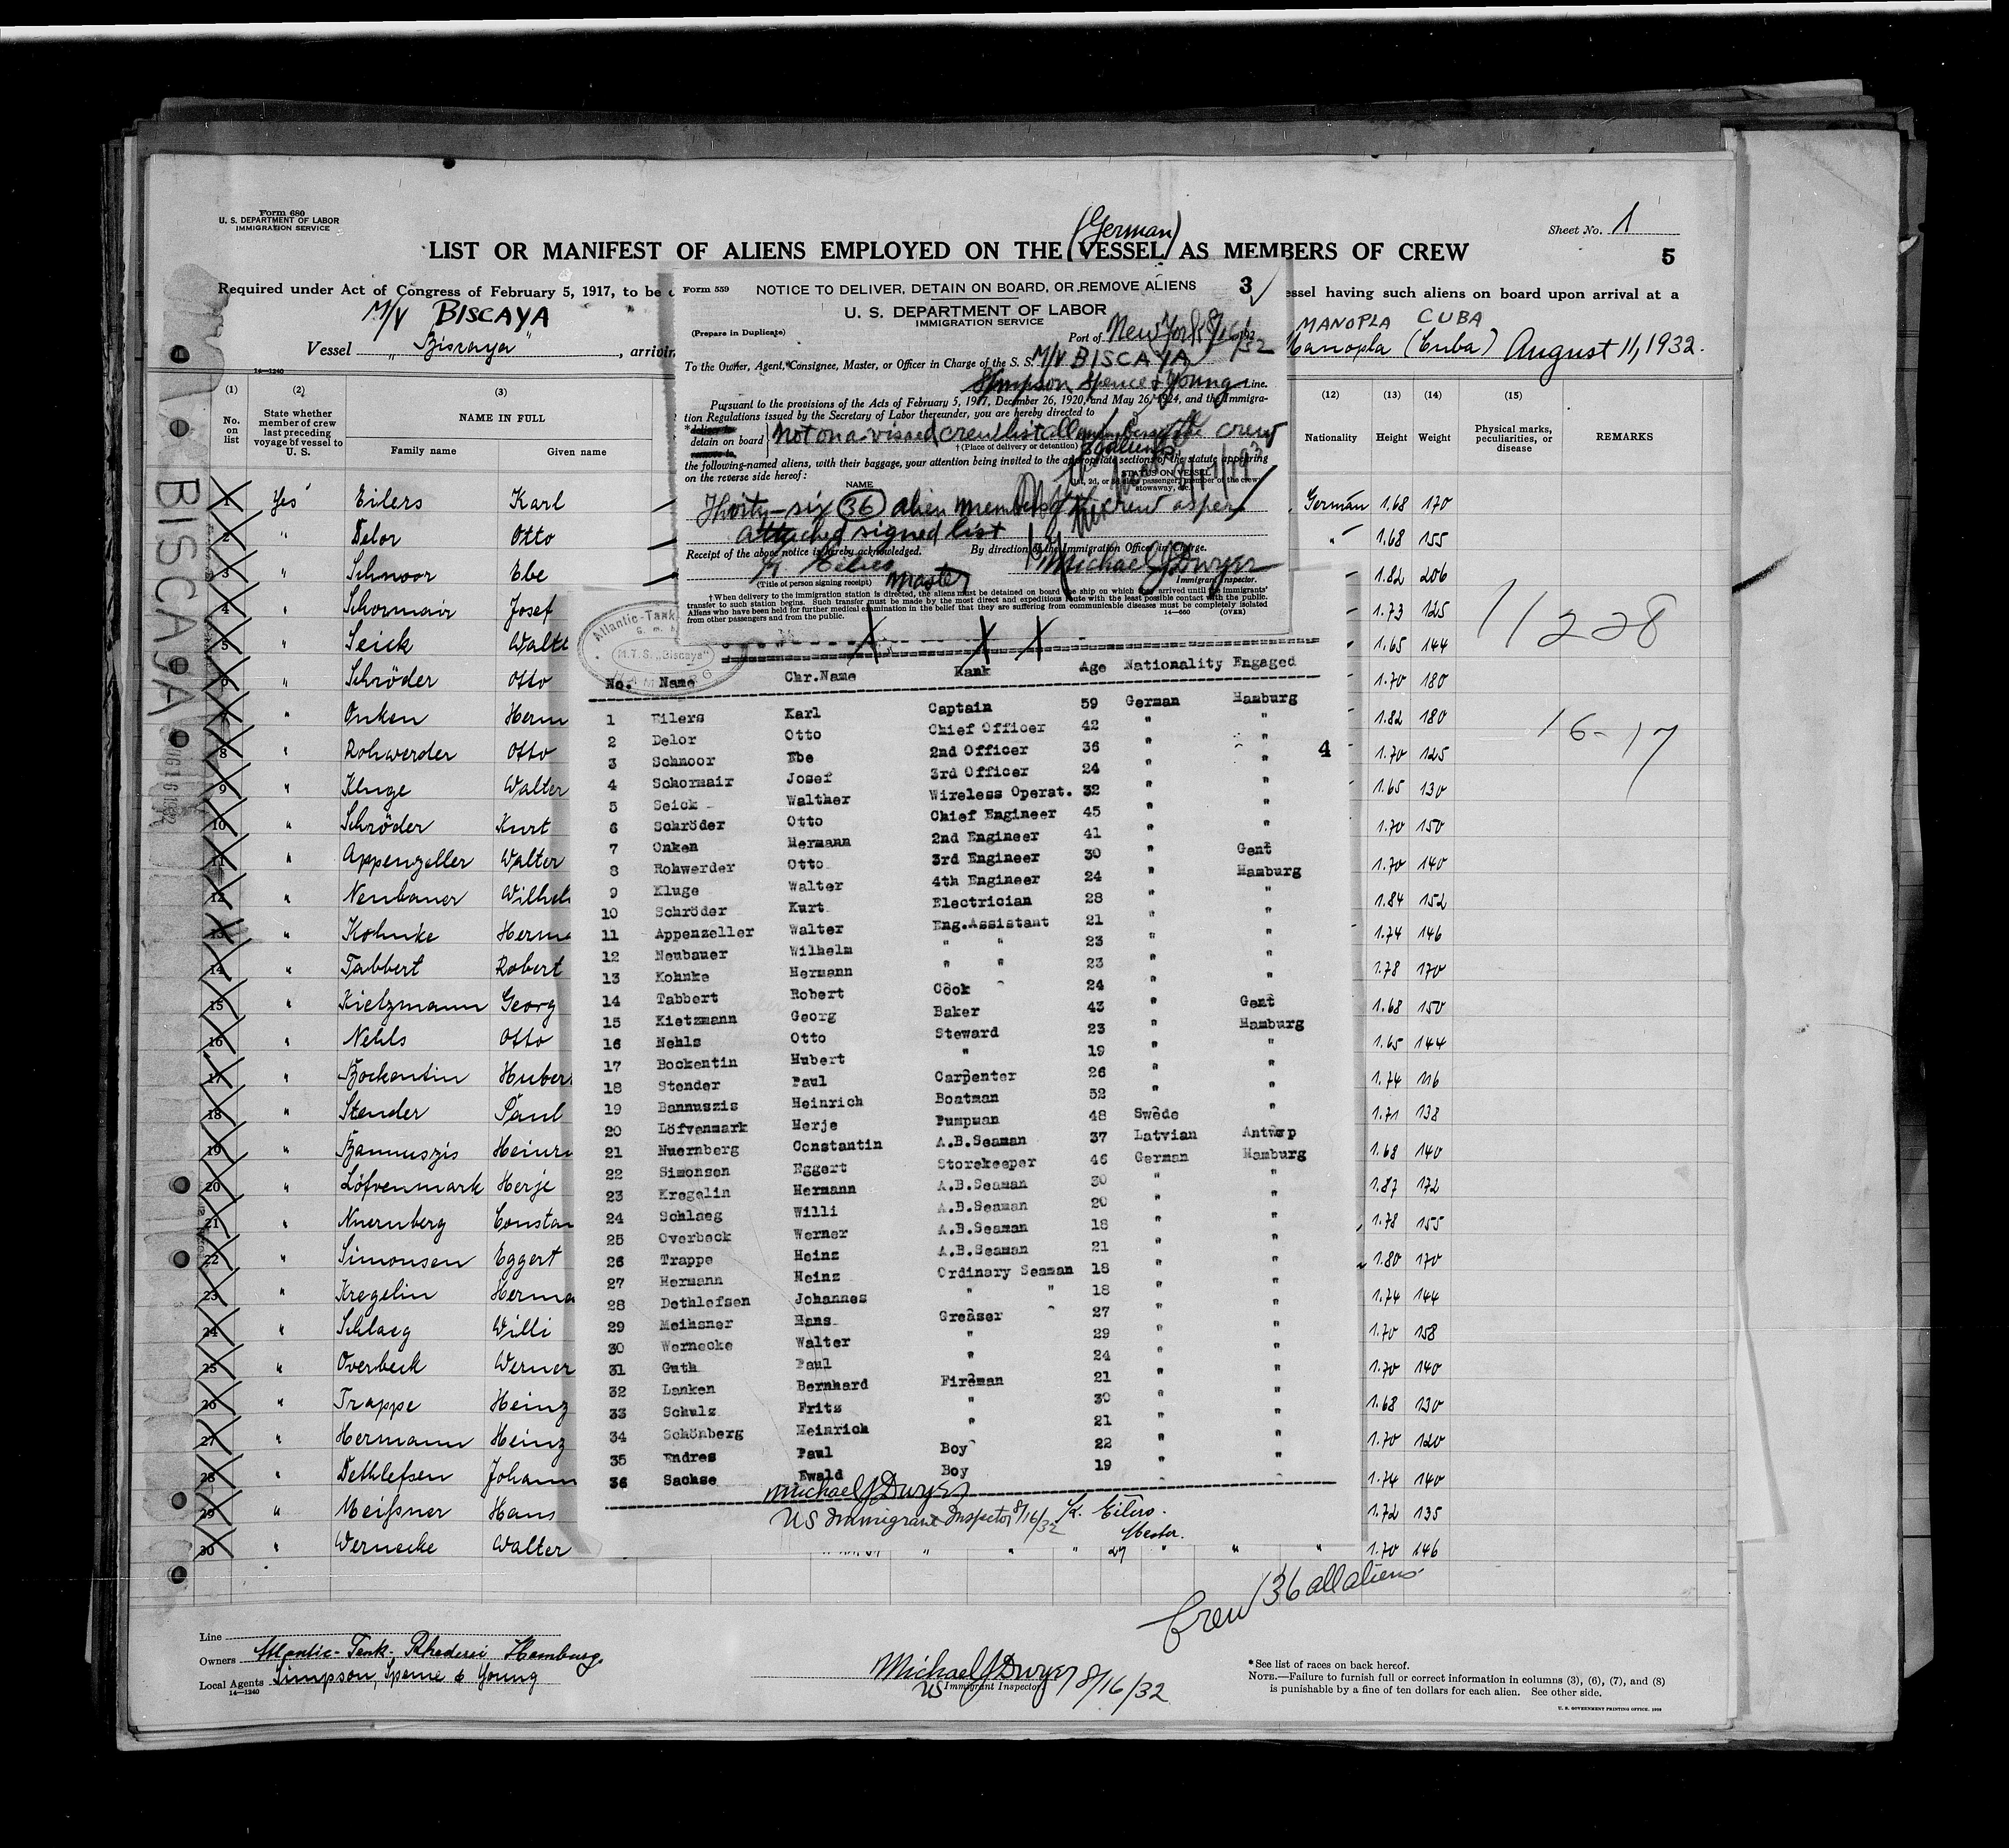 Form 680
U. S. DEPARTMENT OF LABOR
IMMIGRATION SERVICE
Sheet No. 1
(German)
LIST OR MANIFEST OF ALIENS EMPLOYED ON THE VESSEL AS MEMBERS OF CREW
5
Required under Act of Congress of February 5, 1917, to be
essel having such aliens on board upon arrival at a
M/V BISCAYA
MANOPLA CUBA
Vessel "Biscaya", arrivin
Manopla (Cuba) August 11, 1932.
14—1240
(1) (2) (3) (12) (13) (14) (15)
No. on list
State whether member of crew last preceding voyage of vessel to U. S.
NAME IN FULL
Family name Given name
Nationality Height Weight
Physical marks, peculiarities, or disease
REMARKS
BISCAYA
1 Yes Eilers Karl German 1.68 170
2 " Delor Otto " 1.68 155
3 " Schnoor Ebe 1.82 206
4 " Schormair Josef 1.73 125
5 " Seick Walt 1.65 144
6 " Schröder Otto 1.70 180
7 " Onken Herm 1.82 180
8 " Rohwerder Otto 1.70 125
9 " Kluge Walter 1.65 130
10 " Schröder Kurt 1.70 150
11 " Appenzeller Walter 1.70 140
12 " Neubauer Wilhel 1.84 152
13 " Kohnke Herma 1.74 146
14 " Tabbert Robert 1.78 170
15 " Kietzmann Georg 1.68 150
16 " Nehls Otto 1.65 144
17 " Bockentin Huber 1.74 116
18 " Stender Paul 1.71 138
19 " Bannuszis Heinr 1.68 140
20 " Löfvenmark Herje 1.87 172
21 " Nuernberg Constan 1.78 155
22 " Simonsen Eggert 1.80 170
23 " Kregelin Herma 1.74 144
24 " Schlaeg Willi 1.70 158
25 " Overbeck Werner 1.70 140
26 " Trappe Heinz 1.68 130
27 " Hermann Heinz 1.70 120
28 " Dethlefsen Johann 1.74 140
29 " Meißner Hans 1.72 135
30 " Wernecke Walter 29 1.70 146
11228
16-17
Form 559 NOTICE TO DELIVER, DETAIN ON BOARD, OR REMOVE ALIENS 3
U. S. DEPARTMENT OF LABOR
IMMIGRATION SERVICE
(Prepare in Duplicate) Port of New York 8/16/32
To the Owner, Agent, Consignee, Master, or Officer in Charge of the S. S. M/V BISCAYA
Simpson Spence & Young Line.
Pursuant to the provisions of the Acts of February 5, 1917, December 26, 1920, and May 26, 1924, and the Immigra-
tion Regulations issued by the Secretary of Labor thereunder, you are hereby directed to
*deliver to
detain on board Not on a visaed crew list all members of the crew
remove to † (Place of delivery or detention)
the following-named aliens, with their baggage, your attention being invited to the appropriate sections of the statute appearing
on the reverse side hereof:
NAME STATUS ON VESSEL
(1st, 2d, or 3d class passenger, member of the crew, stowaway, etc.)
Thirty-six (36) alien members of the crew as per
attached signed list
Receipt of the above notice is hereby acknowledged. By direction of the Immigration Officer in Charge.
K. Eilers Master Michael J Dwyer
(Title of person signing receipt) Immigrant Inspector.
† When delivery to the immigration station is directed, the aliens must be detained on board the ship on which they arrived until the immigrants'
transfer to such station begins. Such transfer must be made by the most direct and expeditious route with the least possible contact with the public.
Aliens who have been held for further medical examination in the belief that they are suffering from communicable diseases must be completely isolated
from other passengers and from the public. 14—660 (OVER)
Atlantic-Tank
M.T.S. "Biscaya"
No. Name Chr.Name Rank Age Nationality Engaged
1 Eilers Karl Captain 59 German Hamburg
2 Delor Otto Chief Officer 42 " "
3 Schnoor Ebe 2nd Officer 36 " "
4
4 Schormair Josef 3rd Officer 24 " "
5 Seick Walther Wireless Operat. 32 " "
6 Schröder Otto Chief Engineer 45 " "
7 Onken Hermann 2nd Engineer 41 " "
8 Rohwerder Otto 3rd Engineer 30 " Gent
9 Kluge Walter 4th Engineer 24 " Hamburg
10 Schröder Kurt Electrician 28 " "
11 Appenzeller Walter Eng.Assistant 21 " "
12 Neubauer Wilhelm " " 23 " "
13 Kohnke Hermann " " 23 " "
14 Tabbert Robert Cook 24 " "
15 Kietzmann Georg Baker 43 " Gent
16 Nehls Otto Steward 23 " Hamburg
17 Bockentin Hubert " 19 " "
18 Stender Paul Carpenter 26 " "
19 Bannuszis Heinrich Boatman 52 " "
20 Löfvenmark Herje Pumpman 48 Swede "
21 Nuernberg Constantin A.B.Seaman 37 Latvian Antwerp
22 Simonsen Eggert Storekeeper 46 German Hamburg
23 Kregelin Hermann A.B.Seaman 30 " "
24 Schlaeg Willi A.B.Seaman 20 " "
25 Overbeck Werner A.B.Seaman 18 " "
26 Trappe Heinz A.B.Seaman 21 " "
27 Hermann Heinz Ordinary Seaman 18 " "
28 Dethlefsen Johannes " " 18 " "
29 Meihsner Hans Greaser 27 " "
30 Wernecke Walter " 29 " "
31 Guth Paul " 24 " "
32 Lanken Bernhard Fireman 21 " "
33 Schulz Fritz " 30 " "
34 Schönberg Heinrich " 21 " "
35 Endres Paul Boy 22 " "
36 Sachse Ewald Boy 19 " "
Michael J Dwyer
US Immigrant Inspector 8/16/32 K. Eilers.
Master.
Crew 136 all aliens
Line
Owners Atlantic-Tank-Rhederei Hamburg.
Local Agents Simpson, Spence & Young
14—1240
Michael J Dwyer 8/16/32
US Immigrant Inspector.
* See list of races on back hereof.
NOTE.—Failure to furnish full or correct information in columns (3), (6), (7), and (8)
is punishable by a fine of ten dollars for each alien. See other side.
U. S. GOVERNMENT PRINTING OFFICE